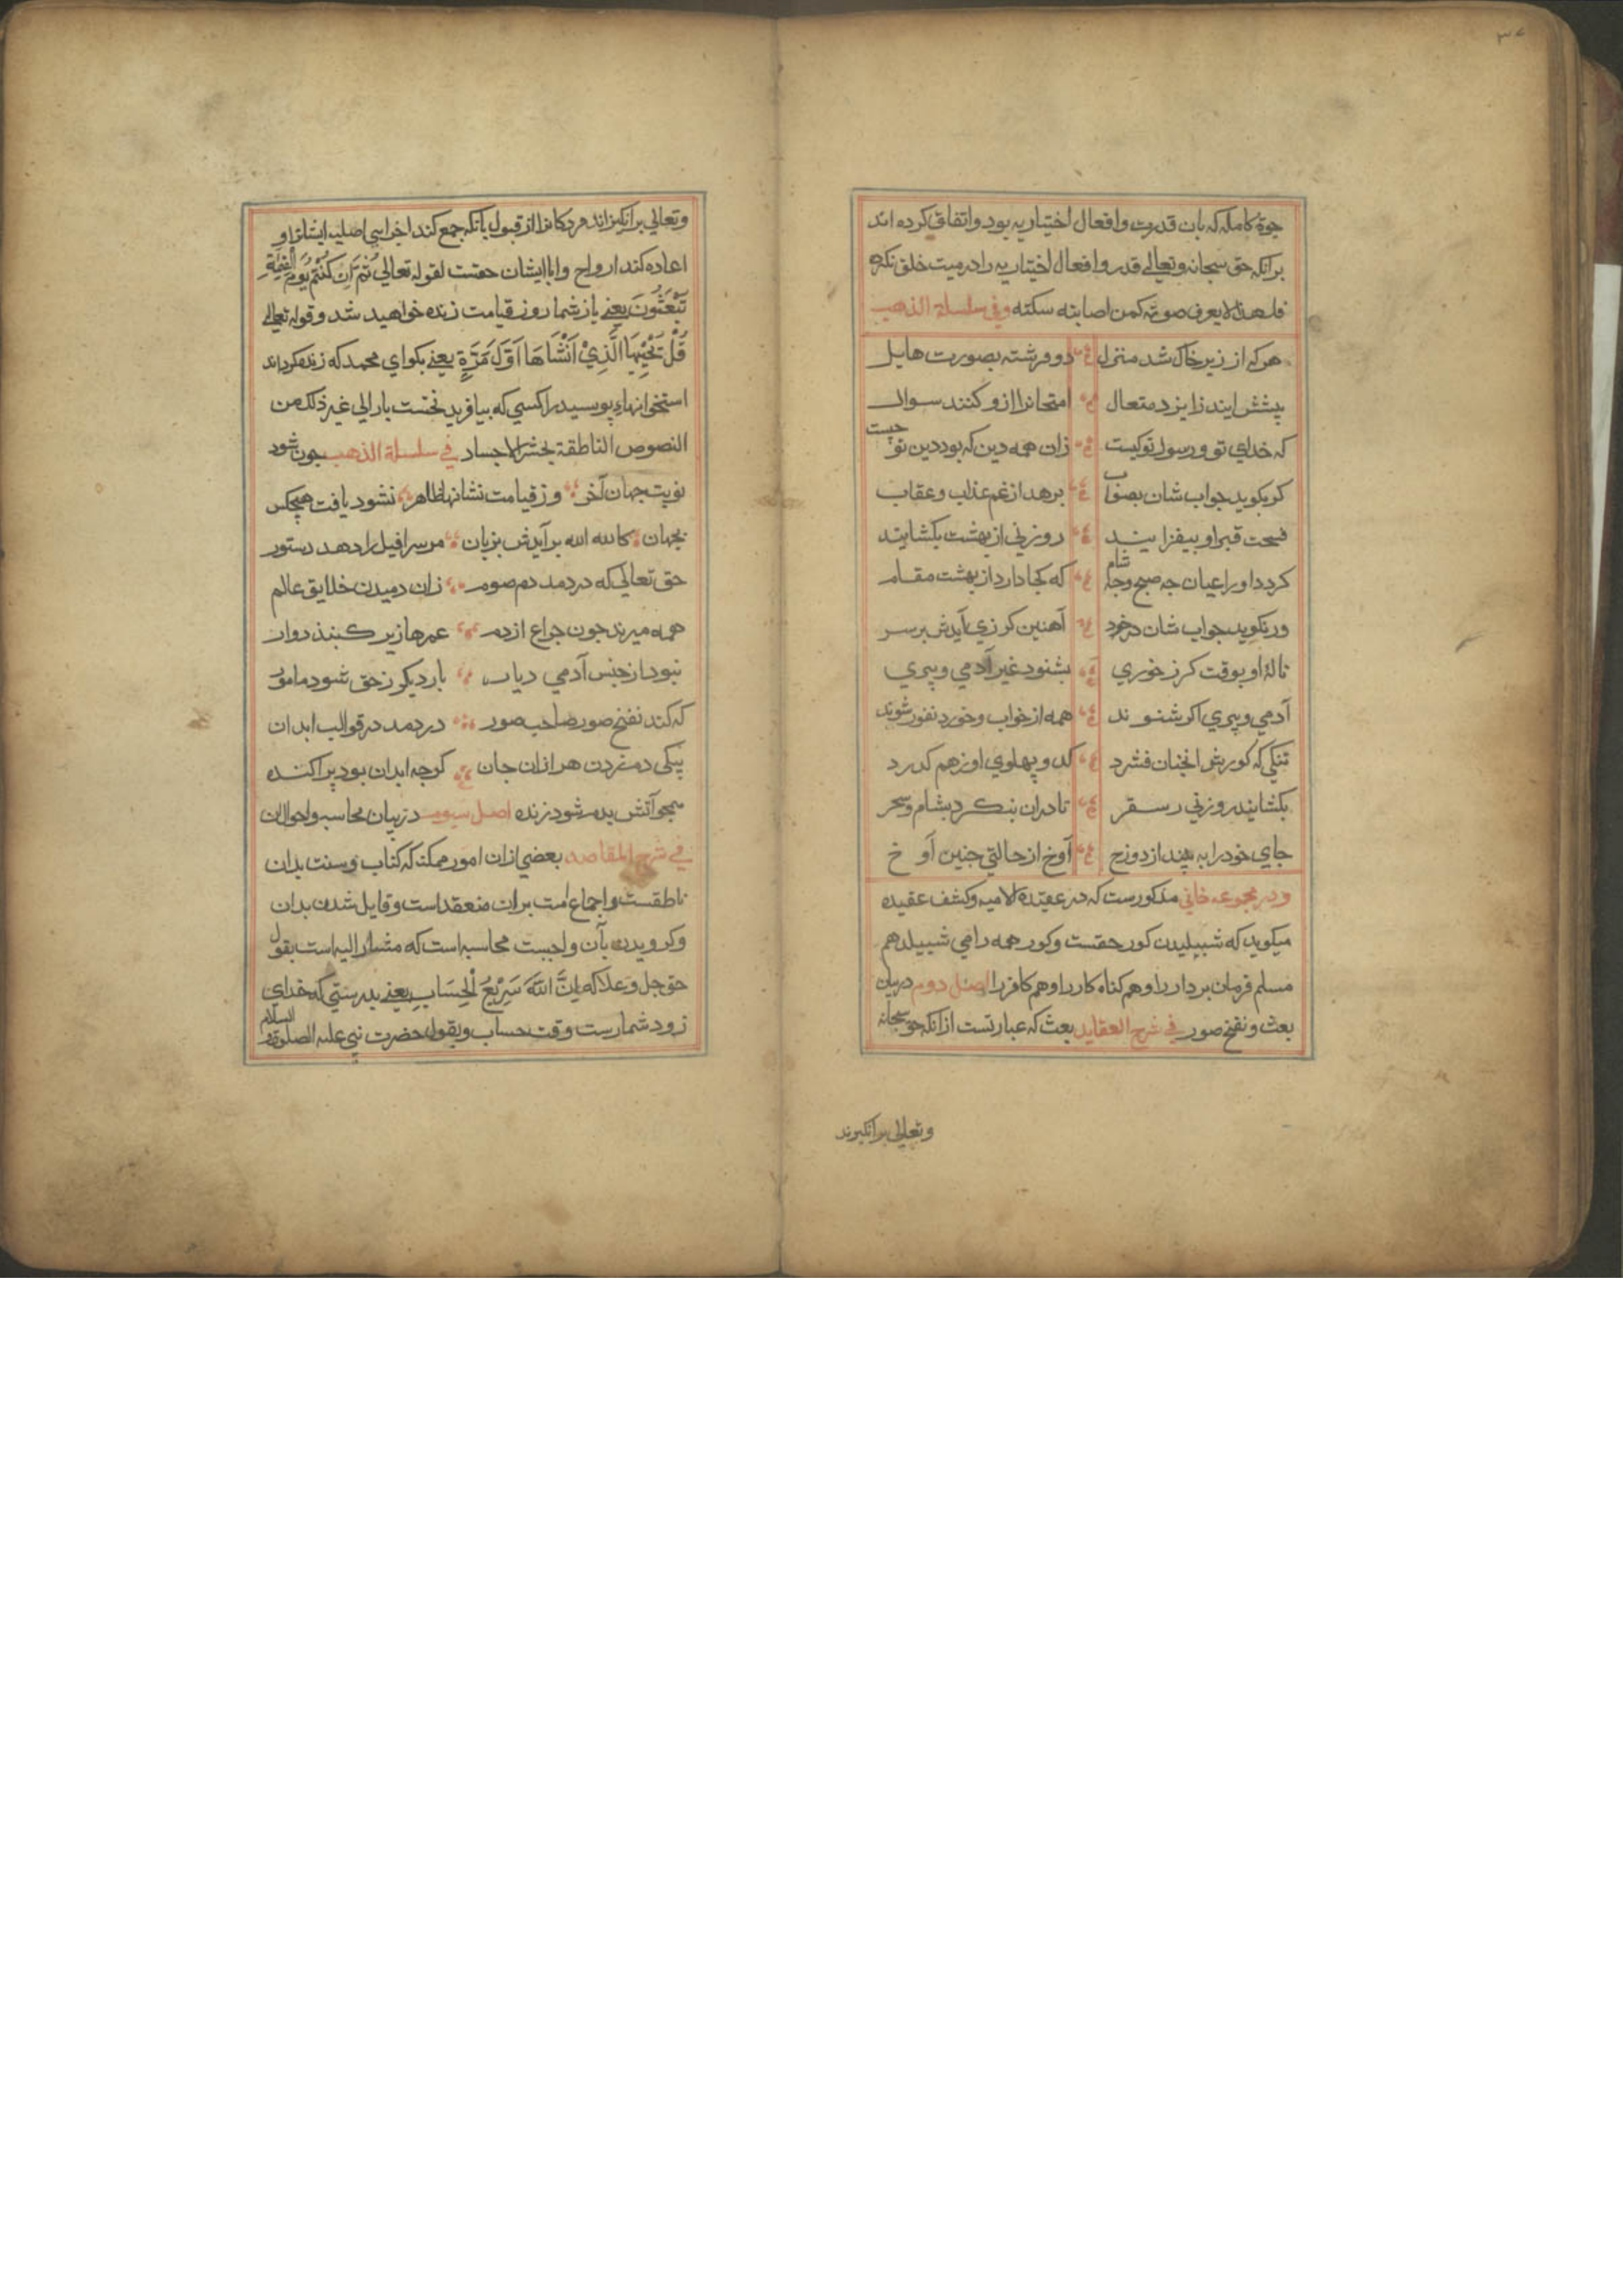 ۳۷
حیوة کامله که بان قدرت وافعال اختیاریه بود واتفاق کرده اند
برانکه حق سبحانه وتعالی قدر وافعال اختیاریه را در میت خلق نکرده
فلهذا لا یعرف موته کمن اصابته سکته وفي سلسلة الذهب
هرکه از زیر خاک شد منزل دو فرشته بصورت هایل
پیشش ایند زایزد متعال امتحانرا ازو کنند سوال
که خدای تو ورسول تو کیست زان همه دین که بود دین تو چیست
کر بکوید جواب شان بصواب برهد از غم عذاب وعقاب
فسحت قبر او بیفزایند روزنی از بهشت بکشایند
کردد او را عیان چه صبح وچه شام که کجا دارد از بهشت مقام
ورنکوید جواب شان در خود آهنین کرزی آیدش بر سر
نالهٔ او بوقت کرز خوری بشنود غیر آدمی وپری
آدمی وپری اکر شنوند همه از خواب وخورد نفور شوند
تنکی که کورش انچنان فشرد که دو پهلوی او زهم کدرد
بکشایند روزنی ز سقر تا دران بنکرد بشام وسحر
جای خود را به بیند از دوزح آوخ از حالتی چنین آوخ
ودر مجموعه خانی مذکورست که در عقیده لامیه وکشف عقیده
میکوید که شیبیلیدن کور حقست وکور همه را می شیبیلد هم
مسلم فرمان بردار را وهم کناه کار را وهم کافر را اصل دوم در بیان
بعث ونفخ صور في شرح العقاید بعث که عبارتست ازانکه حق سبحانه
وتعالی برانکیزند
وتعالی برانکیزاند مردکانرا از قبول بانکه جمع کند اجزای اصلیه ایشانرا و
اعاده کند ارواح وابا ایشان حقست لقوله تعالی ثُمَّ اِنَّكُمْ يَوْمَ الْقِيٰمَةِ
تُبْعَثُونَ یعنی باز شما روز قیامت زنده خواهید شد وقوله تعالی
قُلْ يُحْيِيهَا الَّذِيْ اَنْشَاَهَا اَوَّلَ مَرَّةٍ یعنی بکو ای محمد که زنده کرداند
استخوانهاء پوسیده را کسی که بیافرید نخست بار الی غیر ذلک من
النصوص الناطقة بحشر الاجساد في سلسلة الذهب چون شود
نوبت جهان آخر وز قیامت نشانها ظاهر نشود یافت هیچکس
بجهان کالله الله برآیدش بزبان مر سرافیل را دهد دستور
حق تعالی که دردمد دم صور زان دمیدن خلایق عالم
همه میرند چون چراغ ازدم عمرها زیر کنبذ دوار
نبود از جنس آدمی دیار بار دیکر زحق شود مامور
که کند نفخ صور صاحب صور دردمد در قوالب ابدان
بیکی دم زدن هزاران جان کرچه ابدان بود پراکنده
همچو آتش بدم شود زنده اصل سیوم در بیان محاسبه واحوال ان
في شرح المقاصد بعضی ازان امور ممکنه که کتاب وسنت بدان
ناطقست واجماع امت بران منعقد است وقایل شدن بدان
وکرویدن بآن واجبست محاسبه است که مشار الیه است بقول
حق جل وعلا که اِنَّ اللّٰهَ سَرِيْعُ الْحِسَابِ یعنی بدرستی که خدای
زود شمارست وقت حساب وبقول حضرت نبی علیه الصلوة والسلام